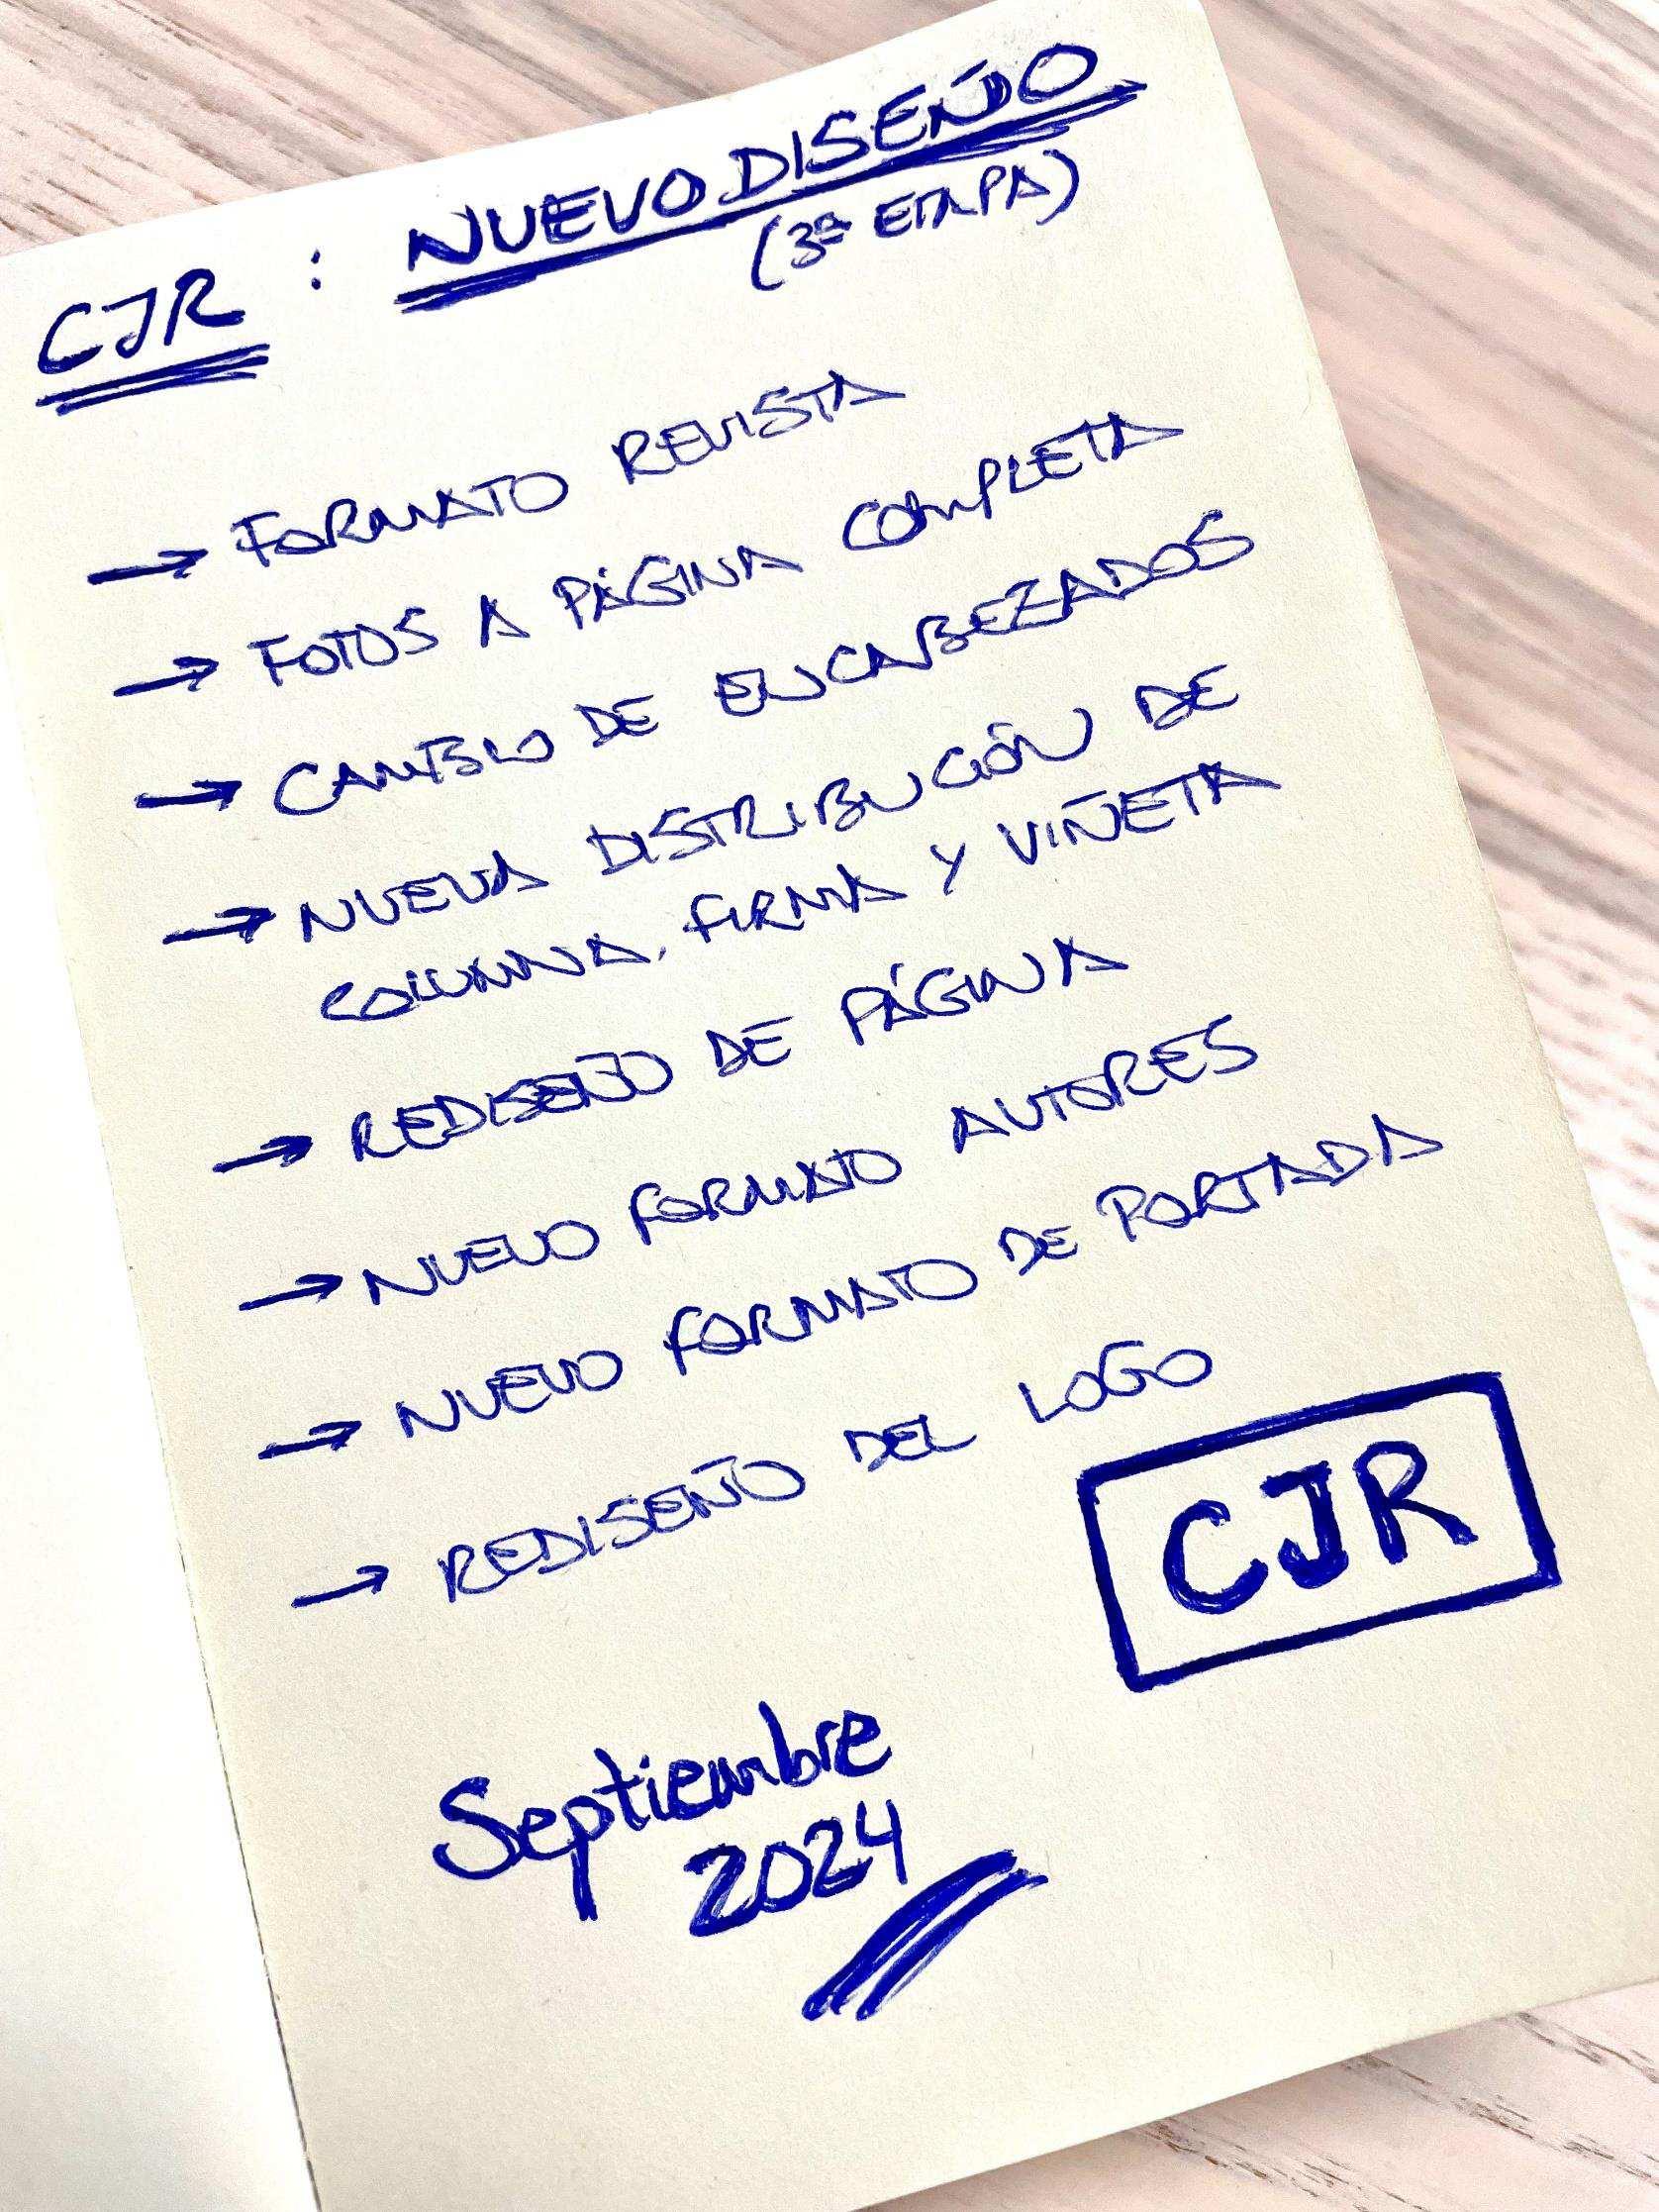 CJR : NUEVO DISEÑO
(3ª ETAPA)
→ FORMATO REVISTA
→ FOTOS A PÁGINA COMPLETA
→ CAMBIO DE ENCABEZADOS
→ NUEVA DISTRIBUCIÓN DE
COLUMNA, FIRMA Y VIÑETA
→ REDISEÑO DE PÁGINA
→ NUEVO FORMATO AUTORES
→ NUEVO FORMATO DE PORTADA
→ REDISEÑO DEL LOGO
CJR
Septiembre
2024